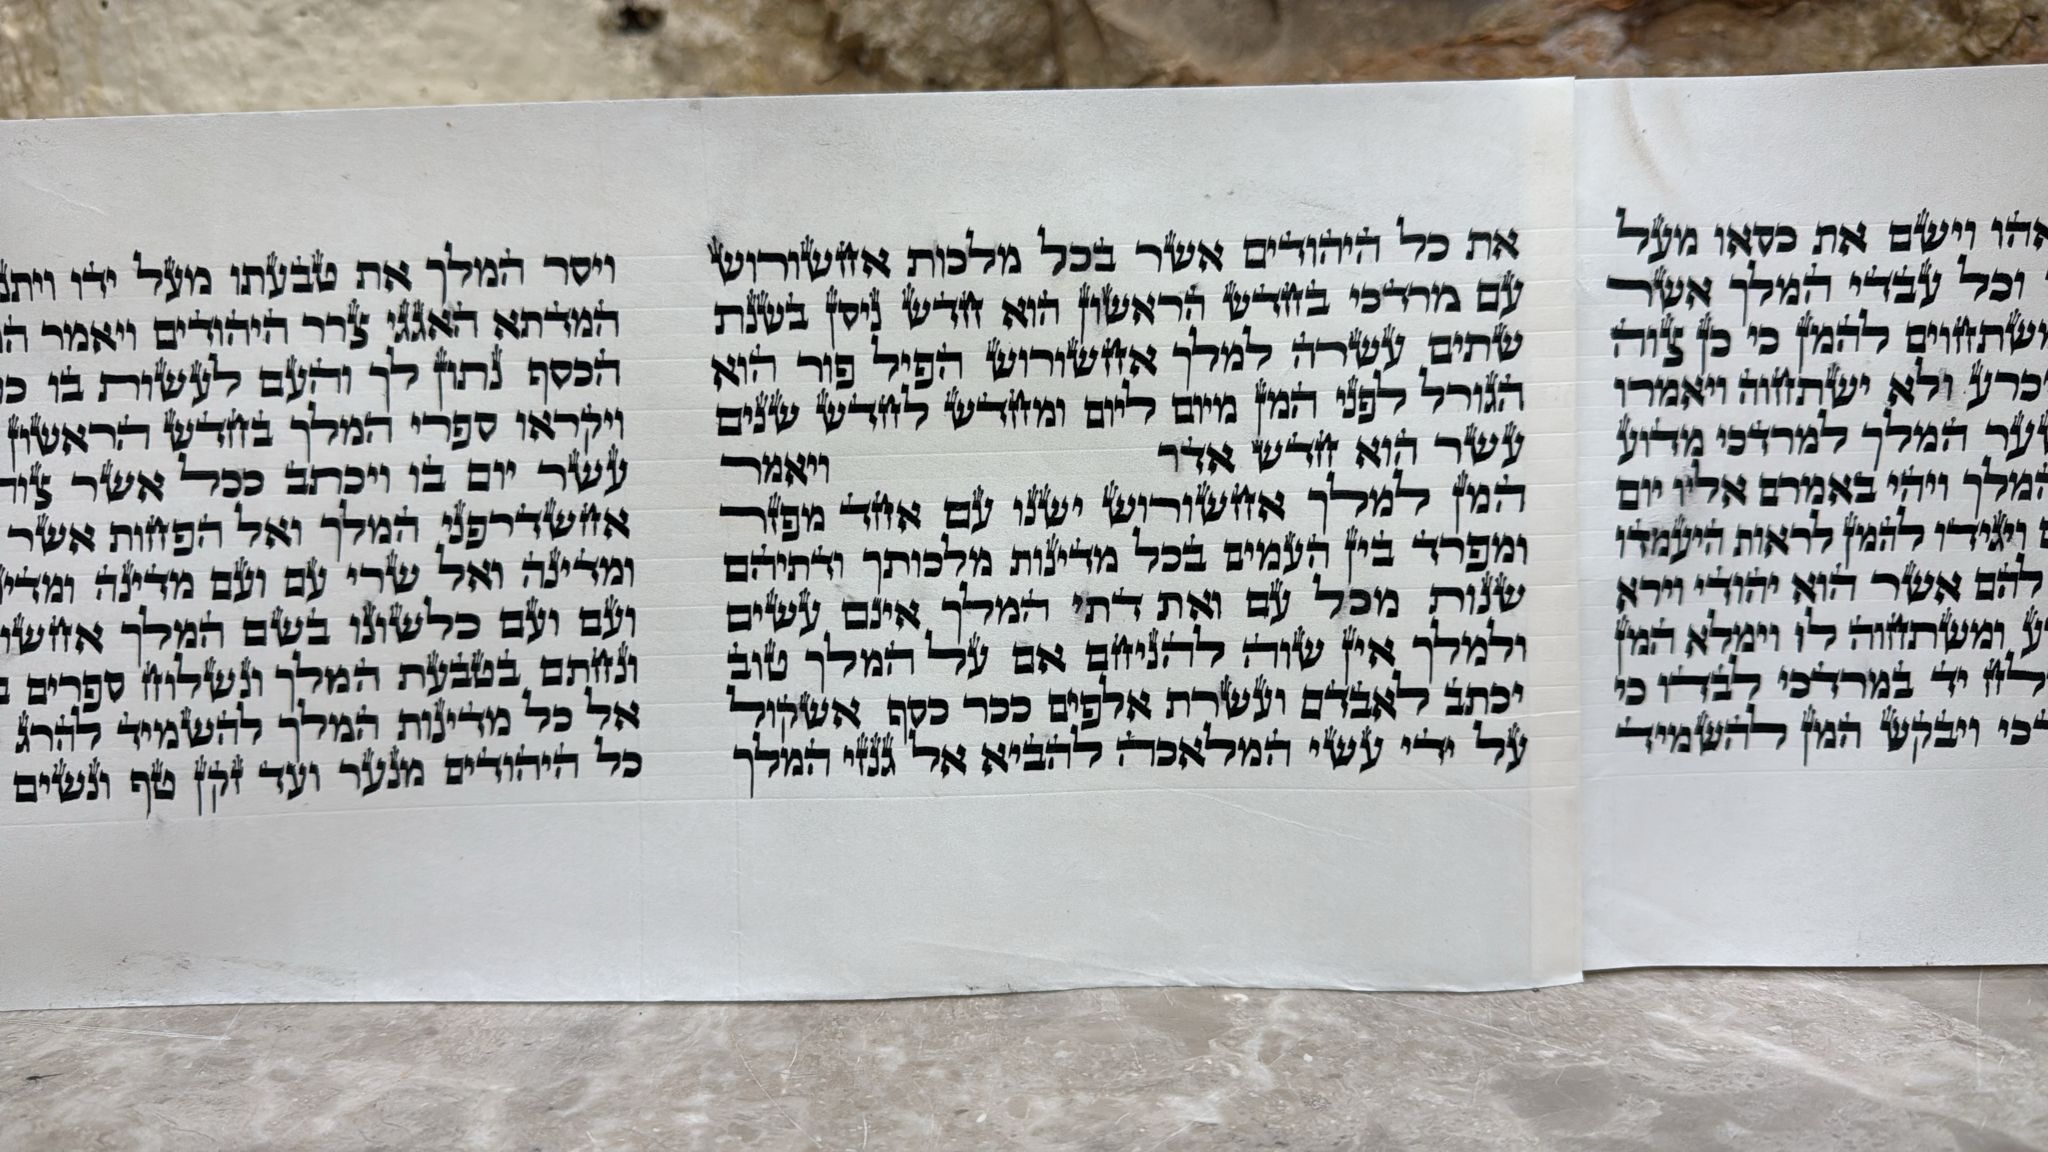 אהו וישם את כסאו מעל
וכל עבדי המלך אשר
משתחוים להמן כי כן צוה
יכרע ולא ישתחוה ויאמרו
שער המלך למרדכי מדוע
המלך ויהי באמרם אליו יום
ויגידו להמן לראות היעמדו
להם אשר הוא יהודי וירא
רע ומשתחוה לו וימלא המן
לח יד במרדכי לבדו כי
דכי ויבקש המן להשמיד
את כל היהודים אשר בכל מלכות אחשורוש
עם מרדכי בחדש הראשון הוא חדש ניסן בשנת
שתים עשרה למלך אחשורוש הפיל פור הוא
הגורל לפני המן מיום ליום ומחדש לחדש שנים
עשר הוא חדש אדר ויאמר
המן למלך אחשורוש ישנו עם אחד מפזר
ומפרד בין העמים בכל מדינות מלכותך ודתיהם
שנות מכל עם ואת דתי המלך אינם עשים
ולמלך אין שוה להניחם אם על המלך טוב
יכתב לאבדם ועשרת אלפים ככר כסף אשקול
על ידי עשי המלאכה להביא אל גנזי המלך
ויסר המלך את טבעתו מעל ידו ויתנ
המדתא האגגי צרר היהודים ויאמר
הכסף נתון לך והעם לעשות בו
ויקראו ספרי המלך בחדש הראשון
עשר יום בו ויכתב ככל אשר צוה
אחשדרפני המלך ואל הפחות אשר
ומדינה ואל שרי עם ועם מדינה ומדינ
ועם ועם כלשונו בשם המלך אחשו
ונחתם בטבעת המלך ונשלוח ספרים
אל כל מדינות המלך להשמיד להרג
כל היהודים מנער ועד זקן טף ונשים